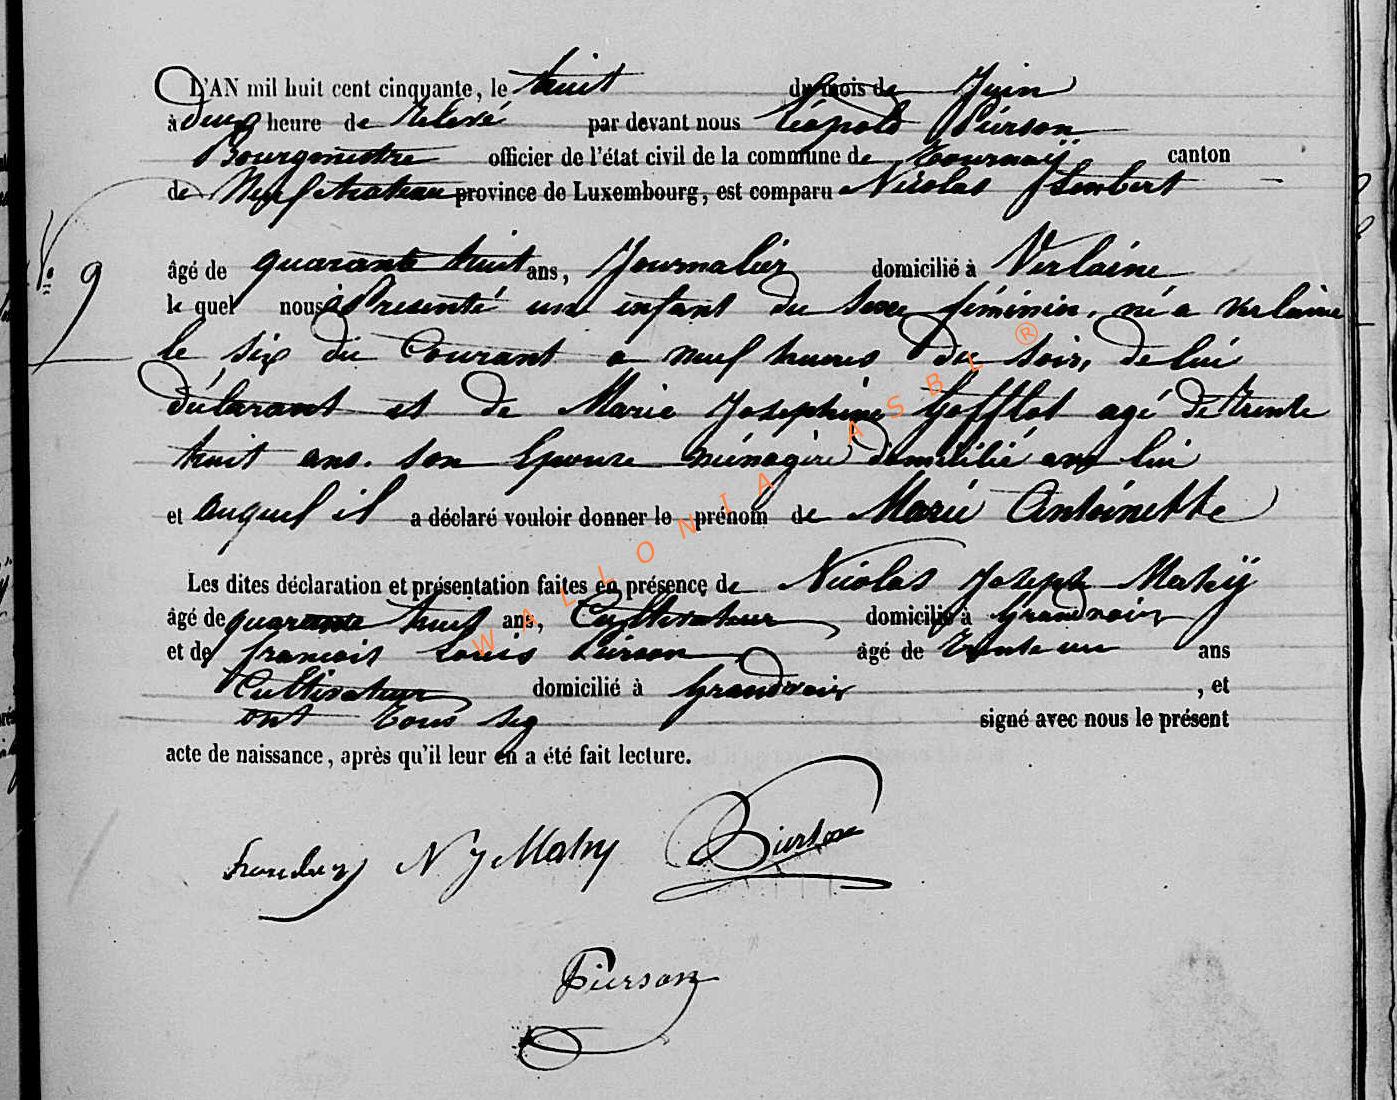 L'AN mil huit cent cinquante, le huit du mois de Juin
à deux heure de Relevé par devant nous Léopold Pierson
Bourgmestre officier de l'état civil de la commune de Tournaÿ canton
de Neufchateau province de Luxembourg, est comparu Nicolas
N° 9
âgé de quarante huit ans, Journalier domicilié à Verlaine
le quel nous à Présenté un enfant du sexe féminin, né a verlaine
le six du Courant a neuf heures du soir, de lui
déclarant et de Marie Josephine Gofflot agé de trente
huit ans. son Epouse ménagère domicilié avec lui
et auquel il a déclaré vouloir donner le prénom de Marie Antoinette
Les dites déclaration et présentation faites en présence de Nicolas Joseph Mahÿ
âgé de quarante ans, Cultivateur domicilié à Grandvoir
et de françois Louis Pierson âgé de Trente un ans
Cultivateur domicilié à Grandvoir , et
ont tous sig signé avec nous le présent
acte de naissance, après qu'il leur en a été fait lecture.
N J Mahy Pierson
Pierson
WALLONIA ASBL ®